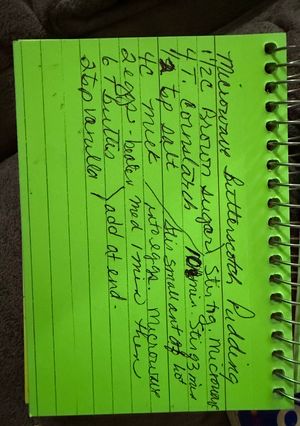 Microwave Butterscotch Pudding
1 1/2 C Brown Sugar / Stir tog. Microwave
4 T. Cornstarch / 10 min. Stir g 3 min
1/2 tsp salt / Stir small amt of hot
4 C milk / into eggs Microwave
2 eggs - beaten med 1 min then
6 T Butter \ add at end.
2 tsp vanilla /